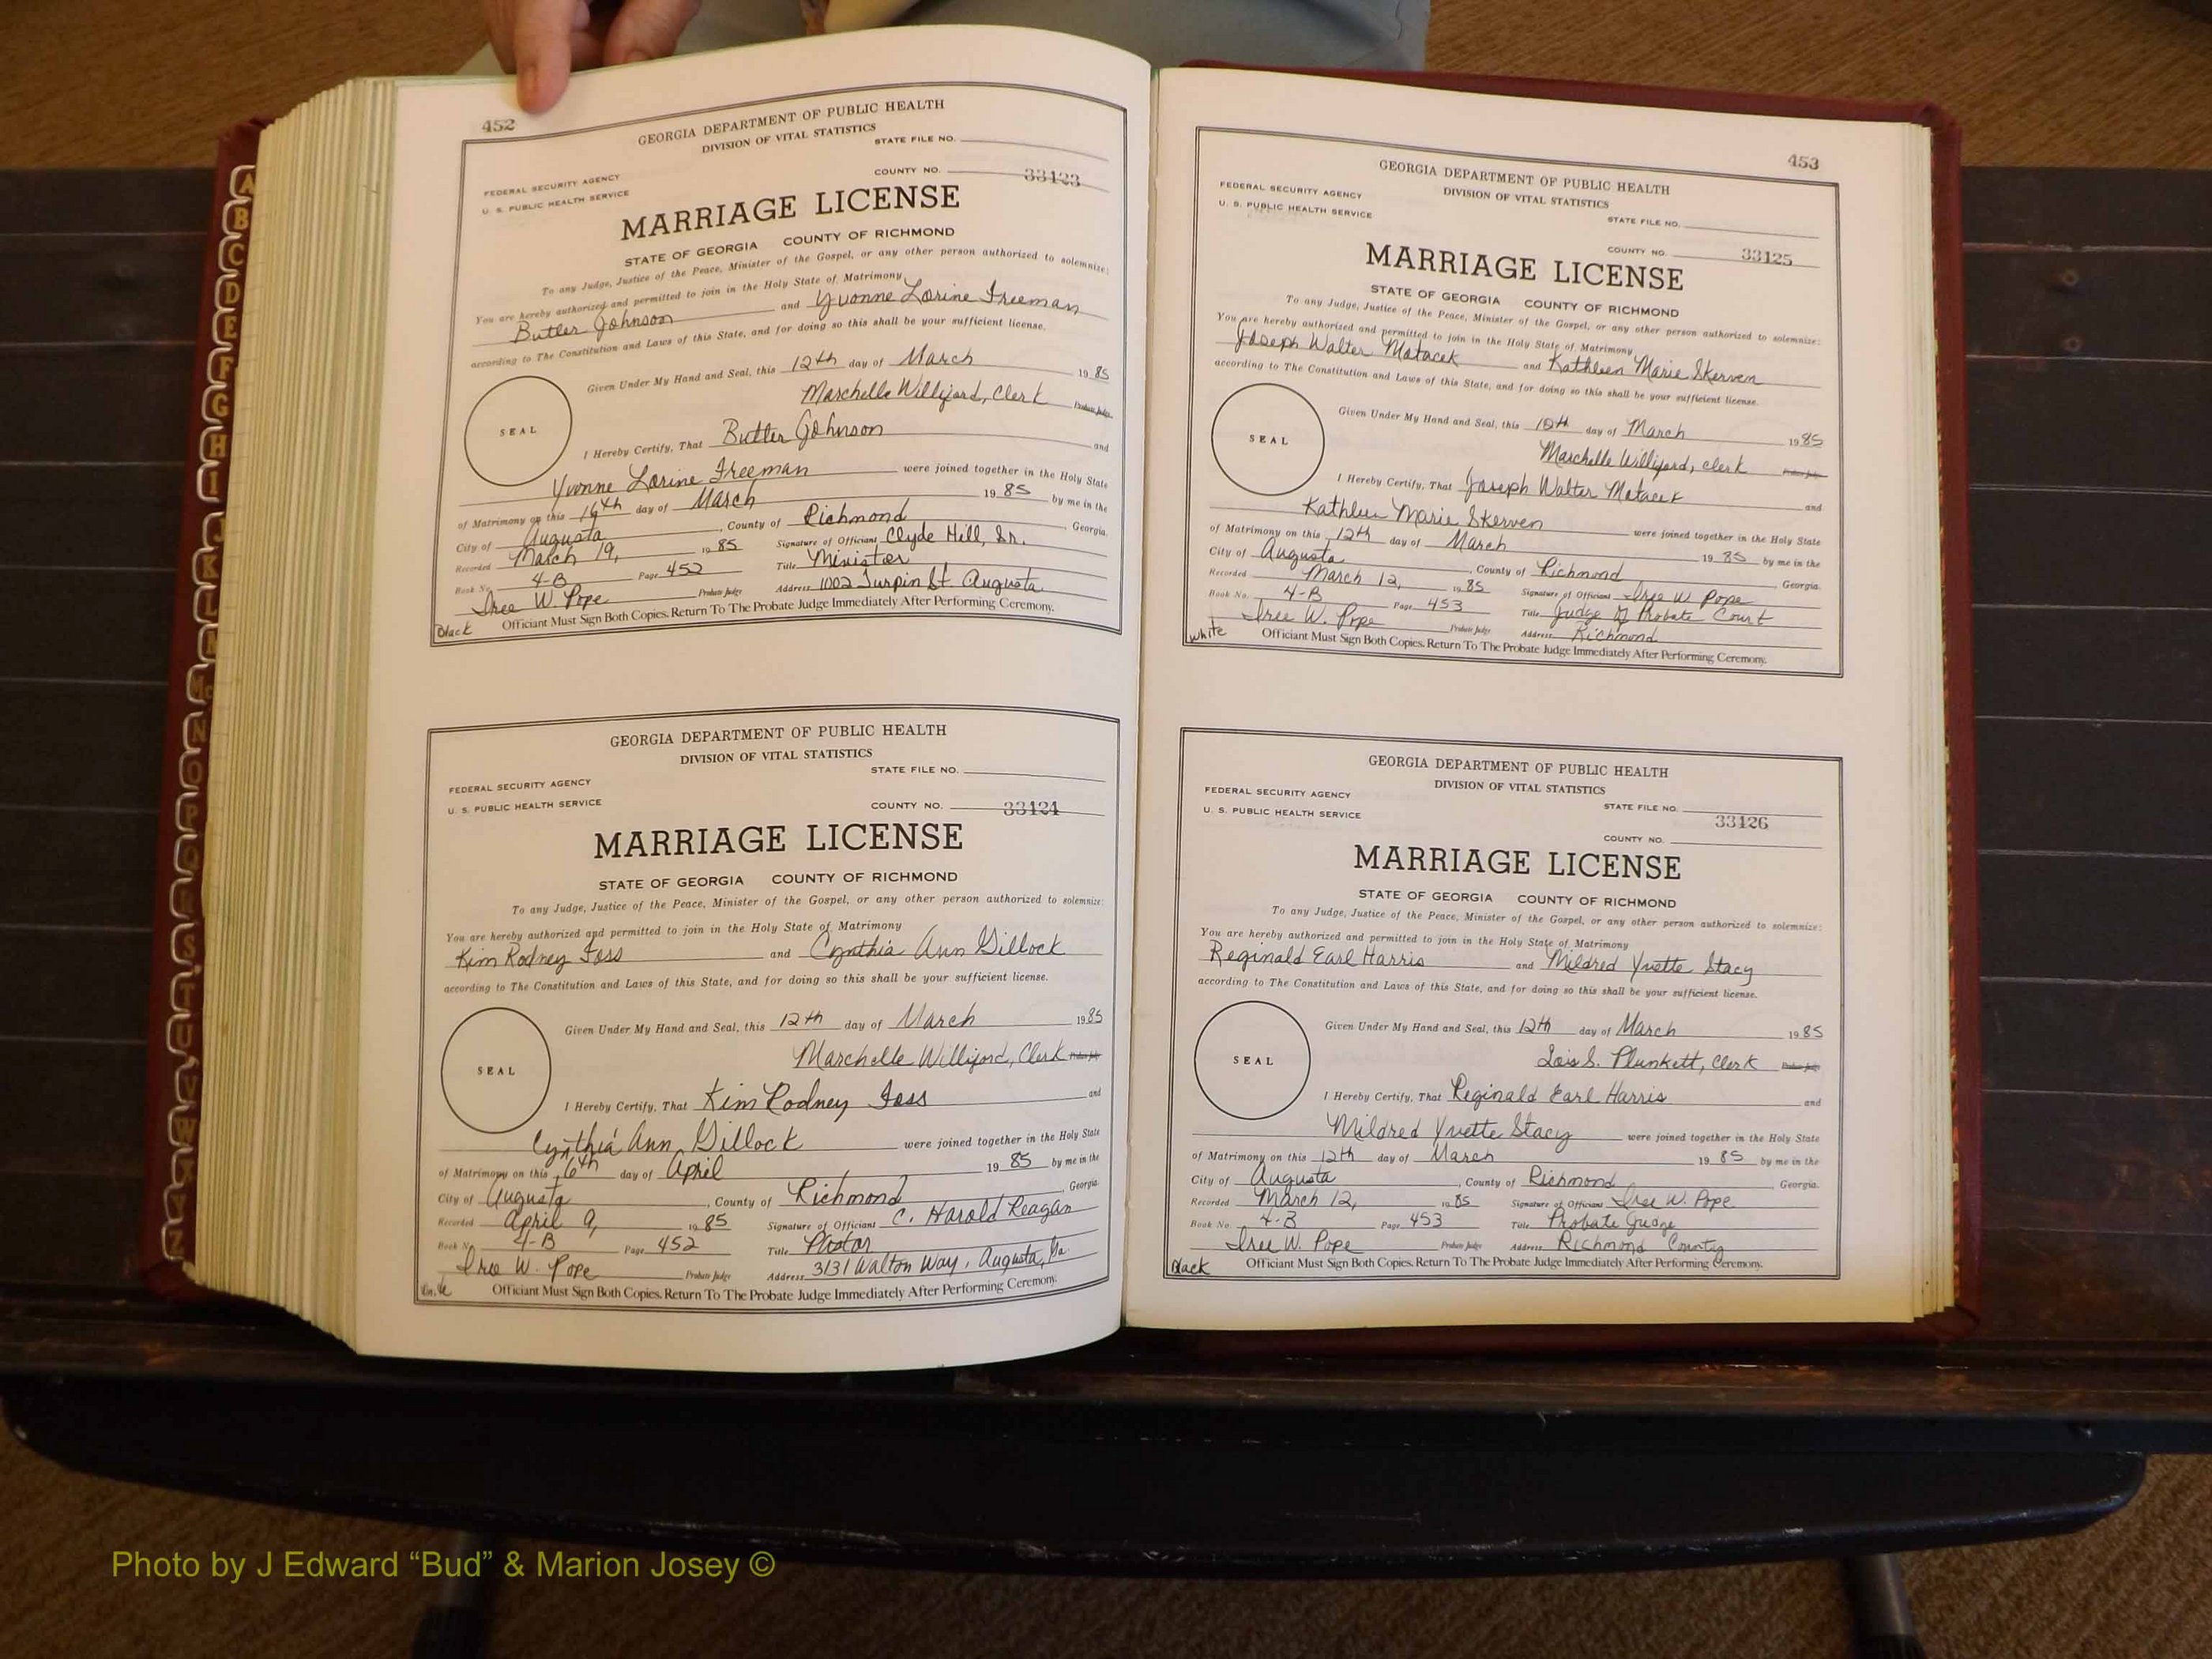 452
GEORGIA DEPARTMENT OF PUBLIC HEALTH
DIVISION OF VITAL STATISTICS
STATE FILE NO.
FEDERAL SECURITY AGENCY
COUNTY NO. 33123
U. S. PUBLIC HEALTH SERVICE
MARRIAGE LICENSE
STATE OF GEORGIA COUNTY OF RICHMOND
To any Judge, Justice of the Peace, Minister of the Gospel, or any other person authorized to solemnize:
You are hereby authorized and permitted to join in the Holy State of Matrimony
Butler Johnson and Yvonne Lorine Freeman
according to The Constitution and Laws of this State, and for doing so this shall be your sufficient license.
Given Under My Hand and Seal, this 12th day of March 1985
Marchelle Williford, Clerk Probate Judge
SEAL
I Hereby Certify, That Butler Johnson and
Yvonne Lorine Freeman were joined together in the Holy State
of Matrimony on this 16th day of March 1985 by me in the
City of Augusta, County of Richmond Georgia.
Recorded March 19, 1985 Signature of Officiant Clyde Hill, Sr.
Book No. 4-B Page 452 Title Minister
Iree W. Pope Probate Judge Address 1002 Turpin St. Augusta
Black Officiant Must Sign Both Copies. Return To The Probate Judge Immediately After Performing Ceremony.
GEORGIA DEPARTMENT OF PUBLIC HEALTH
DIVISION OF VITAL STATISTICS
STATE FILE NO.
FEDERAL SECURITY AGENCY
U. S. PUBLIC HEALTH SERVICE COUNTY NO. 33124
MARRIAGE LICENSE
STATE OF GEORGIA COUNTY OF RICHMOND
To any Judge, Justice of the Peace, Minister of the Gospel, or any other person authorized to solemnize:
You are hereby authorized and permitted to join in the Holy State of Matrimony
Kim Rodney Foss and Cynthia Ann Gillock
according to The Constitution and Laws of this State, and for doing so this shall be your sufficient license.
Given Under My Hand and Seal, this 12th day of March 1985
Marchelle Williford, Clerk Probate Judge
SEAL
I Hereby Certify, That Kim Rodney Foss and
Cynthia Ann Gillock were joined together in the Holy State
of Matrimony on this 6th day of April 1985 by me in the
City of Augusta, County of Richmond Georgia.
Recorded April 9, 1985 Signature of Officiant C. Harold Reagan
Book No. 4-B Page 452 Title Pastor
Iree W. Pope Probate Judge Address 3131 Walton Way, Augusta, Ga.
White Officiant Must Sign Both Copies. Return To The Probate Judge Immediately After Performing Ceremony.
453
GEORGIA DEPARTMENT OF PUBLIC HEALTH
DIVISION OF VITAL STATISTICS
STATE FILE NO.
FEDERAL SECURITY AGENCY
U. S. PUBLIC HEALTH SERVICE
COUNTY NO. 33125
MARRIAGE LICENSE
STATE OF GEORGIA COUNTY OF RICHMOND
To any Judge, Justice of the Peace, Minister of the Gospel, or any other person authorized to solemnize:
You are hereby authorized and permitted to join in the Holy State of Matrimony
Joseph Walter Matacek and Kathleen Marie Skerven
according to The Constitution and Laws of this State, and for doing so this shall be your sufficient license.
Given Under My Hand and Seal, this 12th day of March 1985
Marchelle Williford, Clerk Probate Judge
SEAL
I Hereby Certify, That Joseph Walter Matacek and
Kathleen Marie Skerven were joined together in the Holy State
of Matrimony on this 12th day of March 1985 by me in the
City of Augusta, County of Richmond Georgia.
Recorded March 12, 1985 Signature of Officiant Iree W Pope
Book No. 4-B Page 453 Title Judge of Probate Court
Iree W. Pope Probate Judge Address Richmond
White Officiant Must Sign Both Copies. Return To The Probate Judge Immediately After Performing Ceremony.
GEORGIA DEPARTMENT OF PUBLIC HEALTH
DIVISION OF VITAL STATISTICS
FEDERAL SECURITY AGENCY STATE FILE NO.
U. S. PUBLIC HEALTH SERVICE 33126
COUNTY NO.
MARRIAGE LICENSE
STATE OF GEORGIA COUNTY OF RICHMOND
To any Judge, Justice of the Peace, Minister of the Gospel, or any other person authorized to solemnize:
You are hereby authorized and permitted to join in the Holy State of Matrimony
Reginald Earl Harris and Mildred Yvette Stacy
according to The Constitution and Laws of this State, and for doing so this shall be your sufficient license.
Given Under My Hand and Seal, this 12th day of March 1985
Lois S. Plunkett, Clerk Probate Judge
SEAL
I Hereby Certify, That Reginald Earl Harris and
Mildred Yvette Stacy were joined together in the Holy State
of Matrimony on this 12th day of March 1985 by me in the
City of Augusta, County of Richmond Georgia.
Recorded March 12, 1985 Signature of Officiant Iree W. Pope
Book No. 4-B Page 453 Title Probate Judge
Iree W. Pope Probate Judge Address Richmond County
Black Officiant Must Sign Both Copies. Return To The Probate Judge Immediately After Performing Ceremony.
Photo by J Edward “Bud” & Marion Josey ©